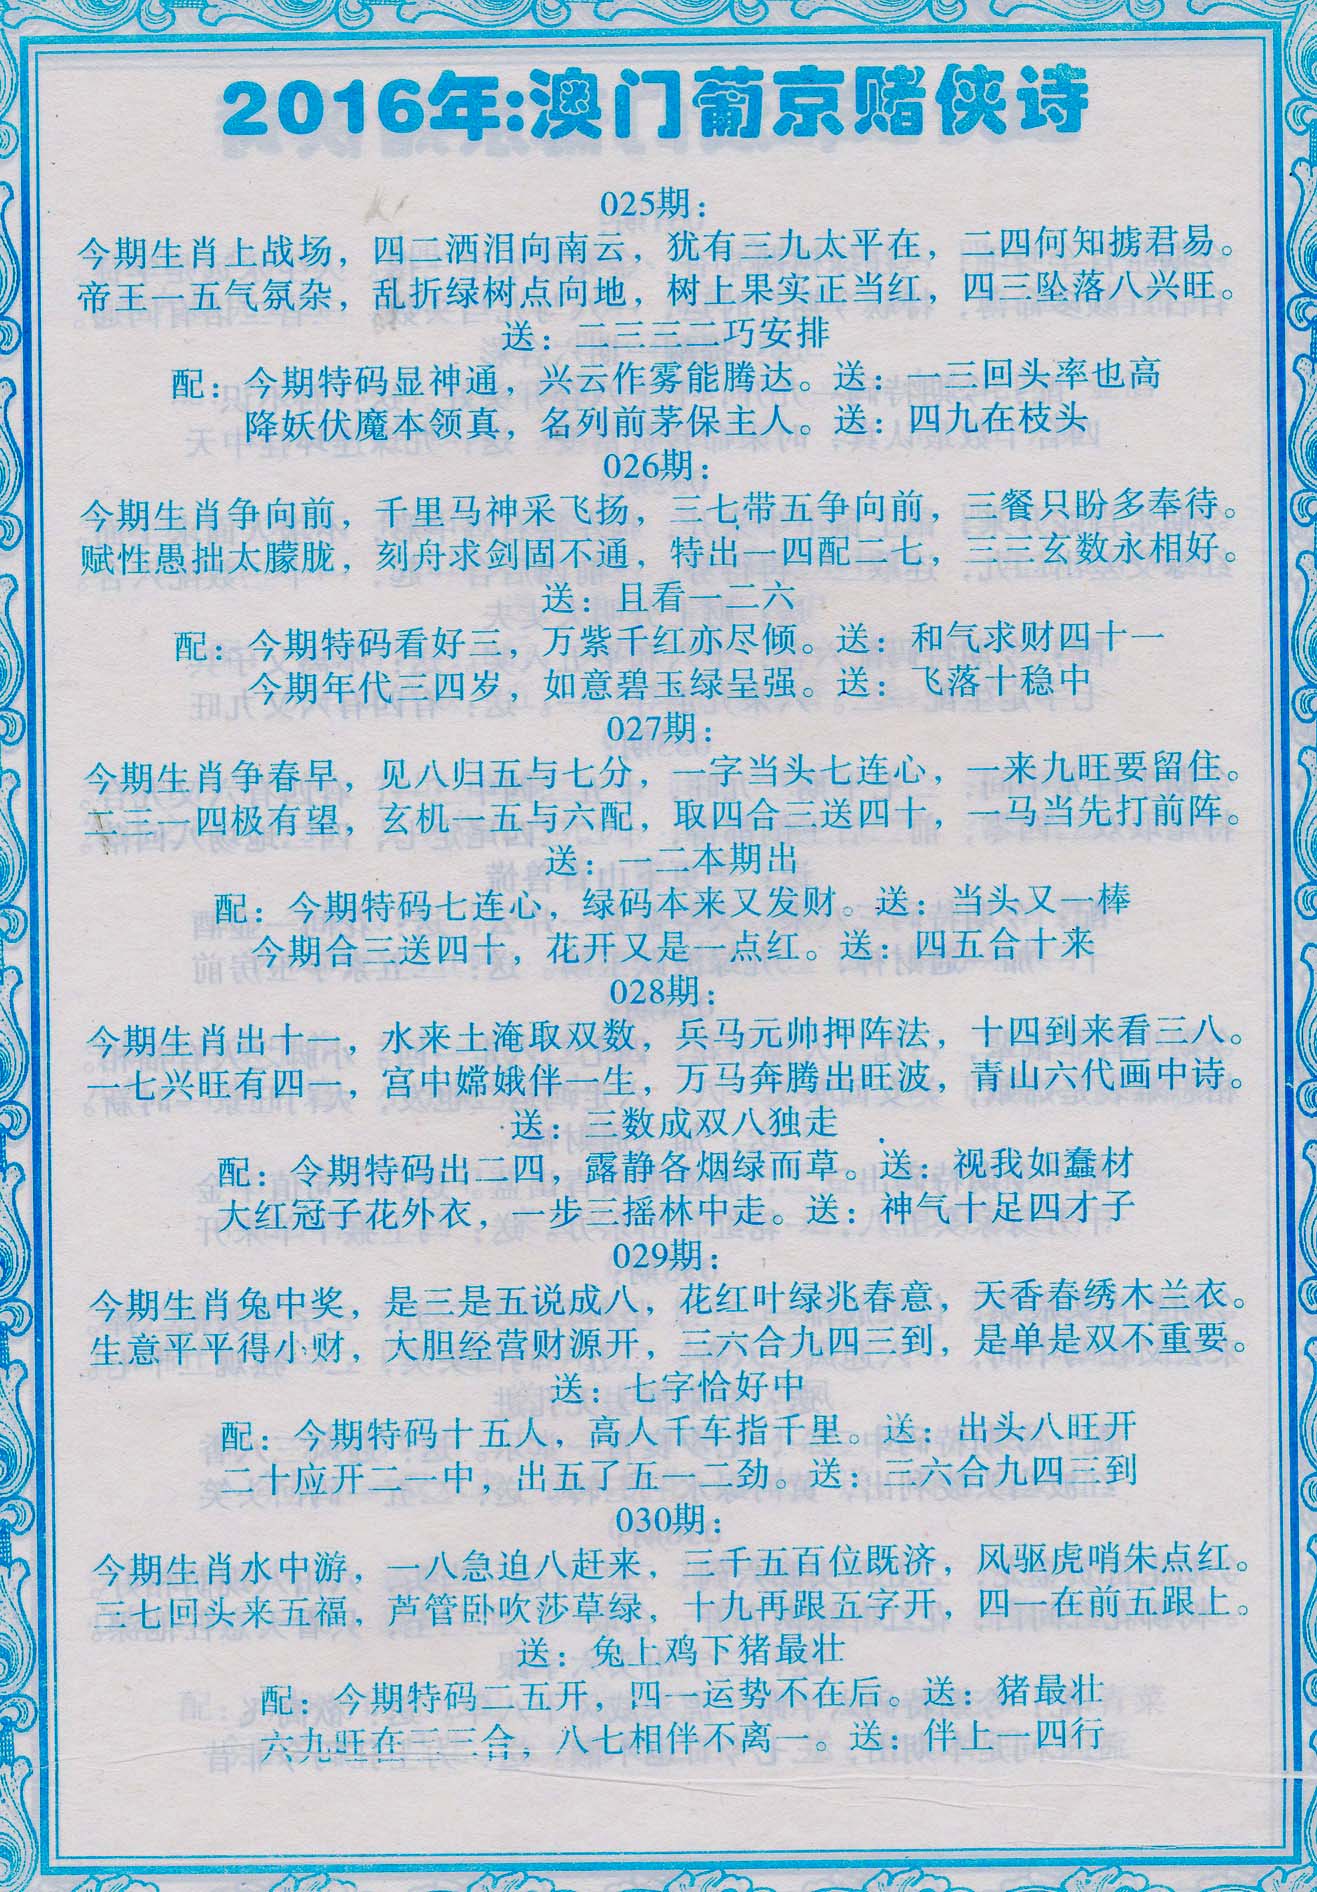 2016年:澳门葡京赌侠诗
025期:
今期生肖上战场，四二洒泪向南云，犹有三九太平在，二四何知掳君易。
帝王一五气氛杂，乱折绿树点向地，树上果实正当红，四三坠落八兴旺。
送:二三三二巧安排
配:今期特码显神通，兴云作雾能腾达。送:一三回头率也高
降妖伏魔本领真，名列前茅保主人。送:四九在枝头
026期:
今期生肖争向前，千里马神采飞扬，三七带五争向前，三餐只盼多奉待。
赋性愚拙太朦胧，刻舟求剑固不通，特出一四配二七，三三玄数永相好。
送:且看一二六
配:今期特码看好三，万紫千红亦尽倾。送:和气求财四十一
今期年代三四岁，如意碧玉绿呈强。送:飞落十稳中
027期:
今期生肖争春早，见八归五与七分，一字当头七连心，一来九旺要留住。
二三一四极有望，玄机一五与六配，取四合三送四十，一马当先打前阵。
送:一二本期出
配:今期特码七连心，绿码本来又发财。送:当头又一棒
今期合三送四十，花开又是一点红。送:四五合十来
028期:
今期生肖出十一，水来土淹取双数，兵马元帅押阵法，十四到来看三八。
一七兴旺有四一，宫中嫦娥伴一生，万马奔腾出旺波，青山六代画中诗。
送:三数成双八独走
配:今期特码出二四，露静各烟绿而草。送:视我如蠢材
大红冠子花外衣，一步三摇林中走。送:神气十足四才子
029期:
今期生肖兔中奖，是三是五说成八，花红叶绿兆春意，天香春绣木兰衣。
生意平平得小财，大胆经营财源开，三六合九四三到，是单是双不重要。
送:七字恰好中
配:今期特码十五人，高人千车指千里。送:出头八旺开
二十应开二一中，出五了五一二劲。送:三六合九四三到
030期:
今期生肖水中游，一八急迫八赶来，三千五百位既济，风驱虎哨朱点红。
三七回头来五福，芦管卧吹莎草绿，十九再跟五字开，四一在前五跟上。
送:兔上鸡下猪最壮
配:今期特码二五开，四一运势不在后。送:猪最壮
六九旺在三三合，八七相伴不离一。送:伴上一四行